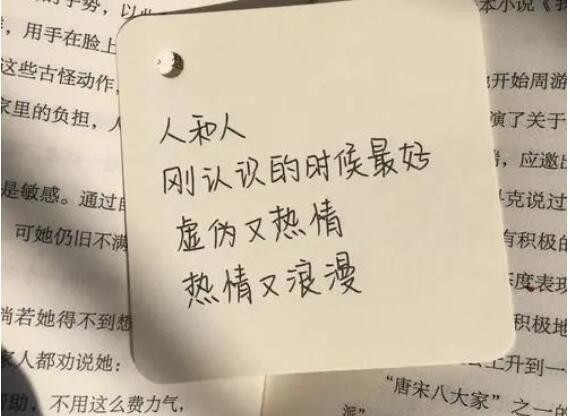 人和人
刚认识的时候最好
虚伪又热情
热情又浪漫
手势,以此
,用手在脸上
这些古怪动作,
家里的负担,人
是敏感。通过自
可她仍旧不满
倘若她得不到想
家人都劝说她:
帮助,不用这么费力气,
本小说《我
开始周游
演了关于
,应邀出
克说过
有积极的
态度表现
积极地
上升到一
“唐宋八大家”之一的
派”